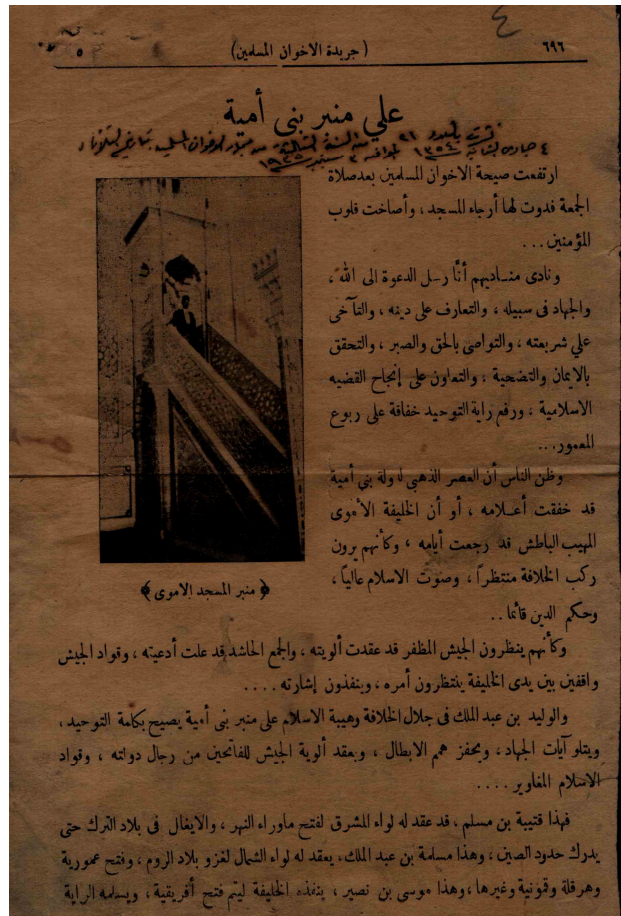 ٤
٦٩٦
( جريدة الاخوان المسلمين )
٥
علي منبر بنى أمية
نشرت بالعدد ٢١ من السنة الثالثة
٤ جمادى الثانية ١٣٥٤ الموافق ٣ سبتمبر ١٩٣٥
ارتفعت صيحة الاخوان المسلمين بعد صلاة
الجمعة فدوت لها أرجاء المسجد ، وأصاخت قلوب
المؤمنين ...
ونادى مناديهم أنَّا رسل الدعوة الى الله ،
والجهاد فى سبيله ، والتعارف على دينه ، والتآخى
علي شريعته ، والتواصي بالحق والصبر ، والتحقق
بالايمان والتضحية ، والتعاون على إنجاح القضيه
الاسلامية ، ورفع راية التوحيد خفاقة على ربوع
المعمور ...
وظن الناس أن العصر الذهبي لدولة بني أمية
قد خفقت أعلامه ، أو أن الخليفة الأموى
المهيب الباطش قد رجعت أيامه ، وكأنهم يرون
ركب الخلافة منتظراً ، وصوت الاسلام عالياً ،
وحكم الدين قائما ..
﴿ منبر المسجد الاموى ﴾
وكأنهم ينظرون الجيش المظفر قد عقدت ألويته ، والجمع الحاشد قد علت أدعيته ، وقواد الجيش
واقفين بين يدى الخليفة ينتظرون أمره ، وينفذون إشارته ....
والوليد بن عبد الملك فى جلال الخلافة وهيبة الاسلام على منبر بنى أمية يصيح بكلمة التوحيد ،
ويتلو آيات الجهاد ، ويحفز همم الابطال ، ويعقد ألوية الجيش للفاتحين من رجال دولته ، وقواد
الاسلام المغاوير ....
فهذا قتيبة بن مسلم ، قد عقد له لواء المشرق لفتح ماوراء النهر ، والايغال فى بلاد الترك حتى
يدرك حدود الصين ، وهذا مسلمة بن عبد الملك ، يعقد له لواء الشمال لغزو بلاد الروم ، وفتح عمورية
وهرقلة وقمونية وغيرها ، وهذا موسى بن نصير ، ينفذه الخليفة ليتم فتح أفريقية ، ويسلمه الراية